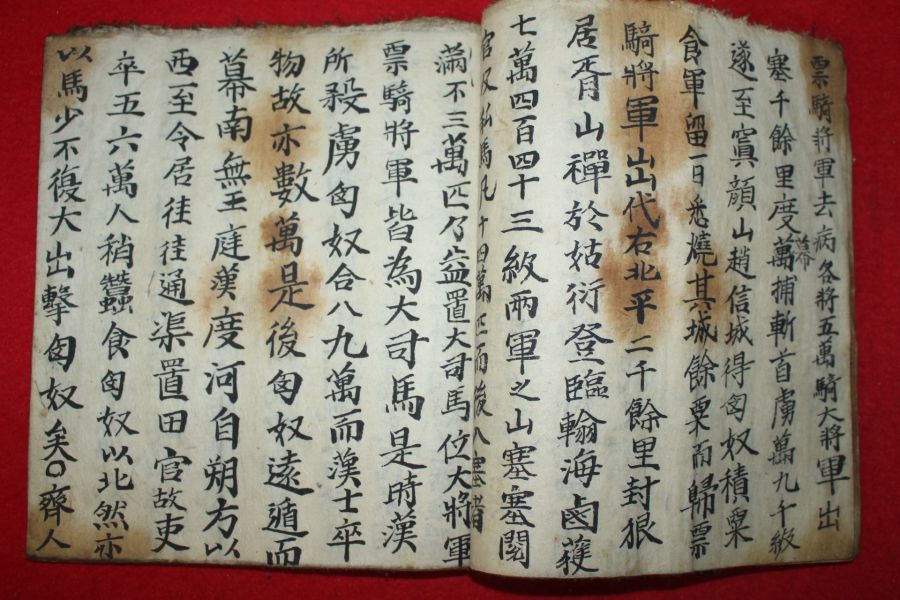 票騎將軍去病各將五萬騎大將軍出
塞千餘里度萬捕斬首虜萬九千級
幕
遂至窴顔山趙信城得匈奴積粟
食軍留一日悉燒其城餘粟而歸票
騎將軍出代右北平二千餘里封狼
居胥山禪於姑衍登臨翰海鹵獲
七萬四百四十三級兩軍之出塞塞閱
官私馬凡十四萬匹而後入塞者
滿不三萬匹乃益置大司馬位大將軍
票騎將軍皆為大司馬是時漢
所殺虜匈奴合八九萬而漢士卒
物故亦數萬是後匈奴遠遁而
幕南無王庭漢度河自朔方以
西至令居往往通渠置田官故吏
卒五六萬人稍蠶食匈奴以北然亦
以馬少不復大出擊匈奴矣○齊人